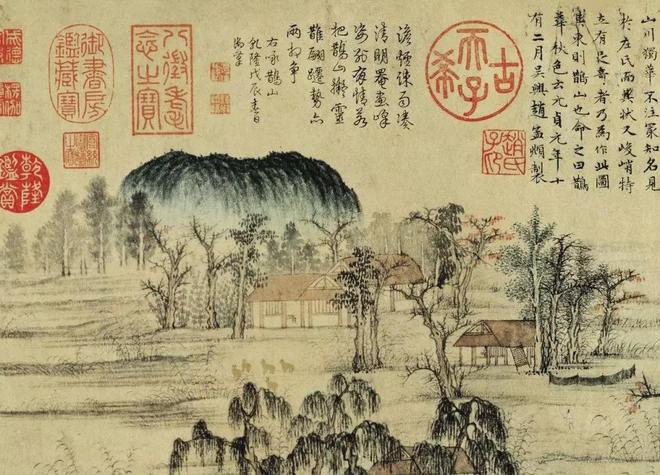 山川獨華不注冣知名見
於左氏而其狀又峻峭特
立有足奇者乃為作此圖
其東則鵲山也命之曰鵲
華秋色云元貞元年十
有二月吳興趙孟頫製
趙氏子昂
古希天子
澹煙疎雨湊
清明罨畫峰
姿夜情若
把鵲山擬靈
鵲翩躚勢亦
兩相爭
右詠鵲山
乾隆戊辰春日
御筆
八徵耄念之寶
御書房鑑藏寶
乾隆鑑賞